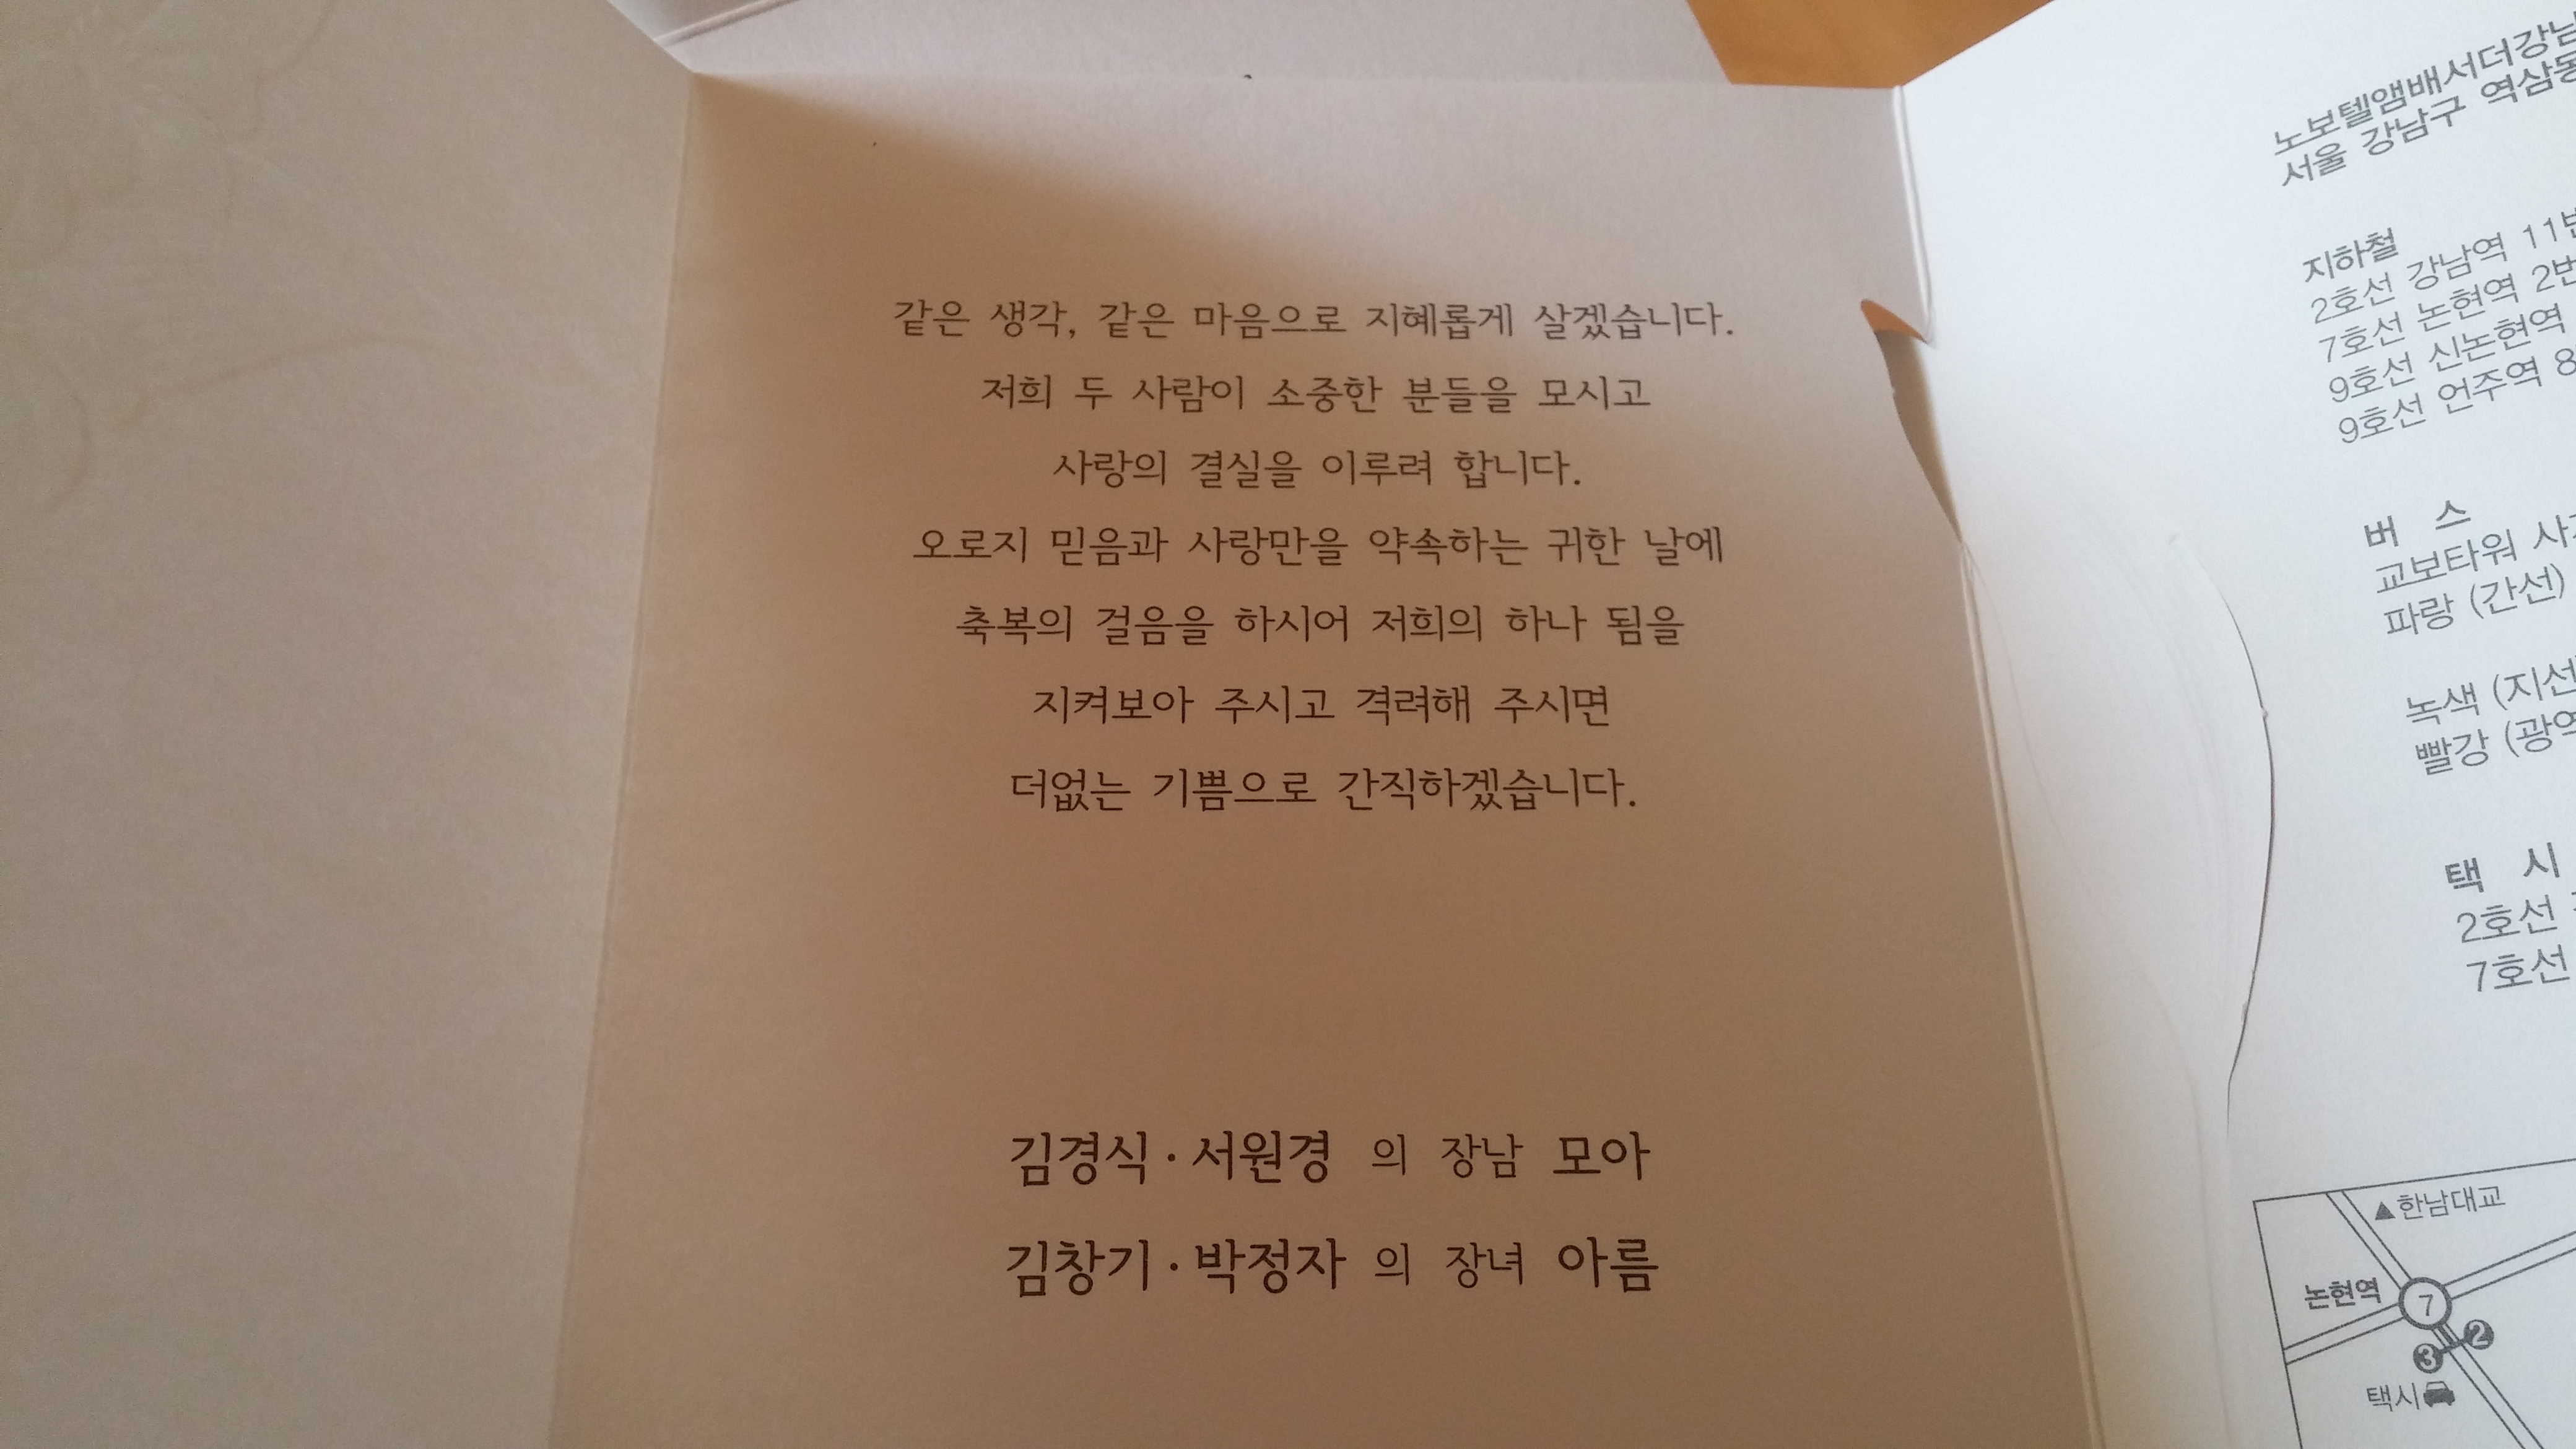 같은 생각, 같은 마음으로 지혜롭게 살겠습니다.
저희 두 사람이 소중한 분들을 모시고
사랑의 결실을 이루려 합니다.
오로지 믿음과 사랑만을 약속하는 귀한 날에
축복의 걸음을 하시어 저희의 하나 됨을
지켜보아 주시고 격려해 주시면
더없는 기쁨으로 간직하겠습니다.
김경식·서원경 의 장남 모아
김창기·박정자 의 장녀 아름
노보텔앰배서더강남
서울 강남구 역삼동
지하철
2호선 강남역 11번
7호선 논현역 2번
9호선 신논현역
9호선 언주역 8
버 스
교보타워
파랑 (간선)
녹색 (지선
빨강 (광역
택 시
2호선
7호선
▲한남대교
논현역
7
2
3
택시